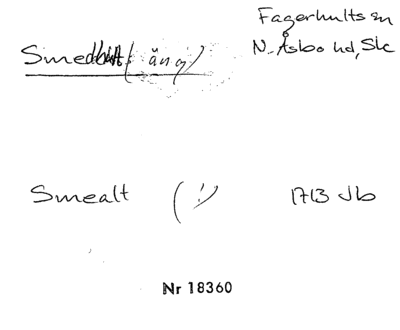 Fagerhults sn
Smedhult (äng) N. Åsbo hd, Sk
Smealt (!) 1713 Jb
Nr 18360